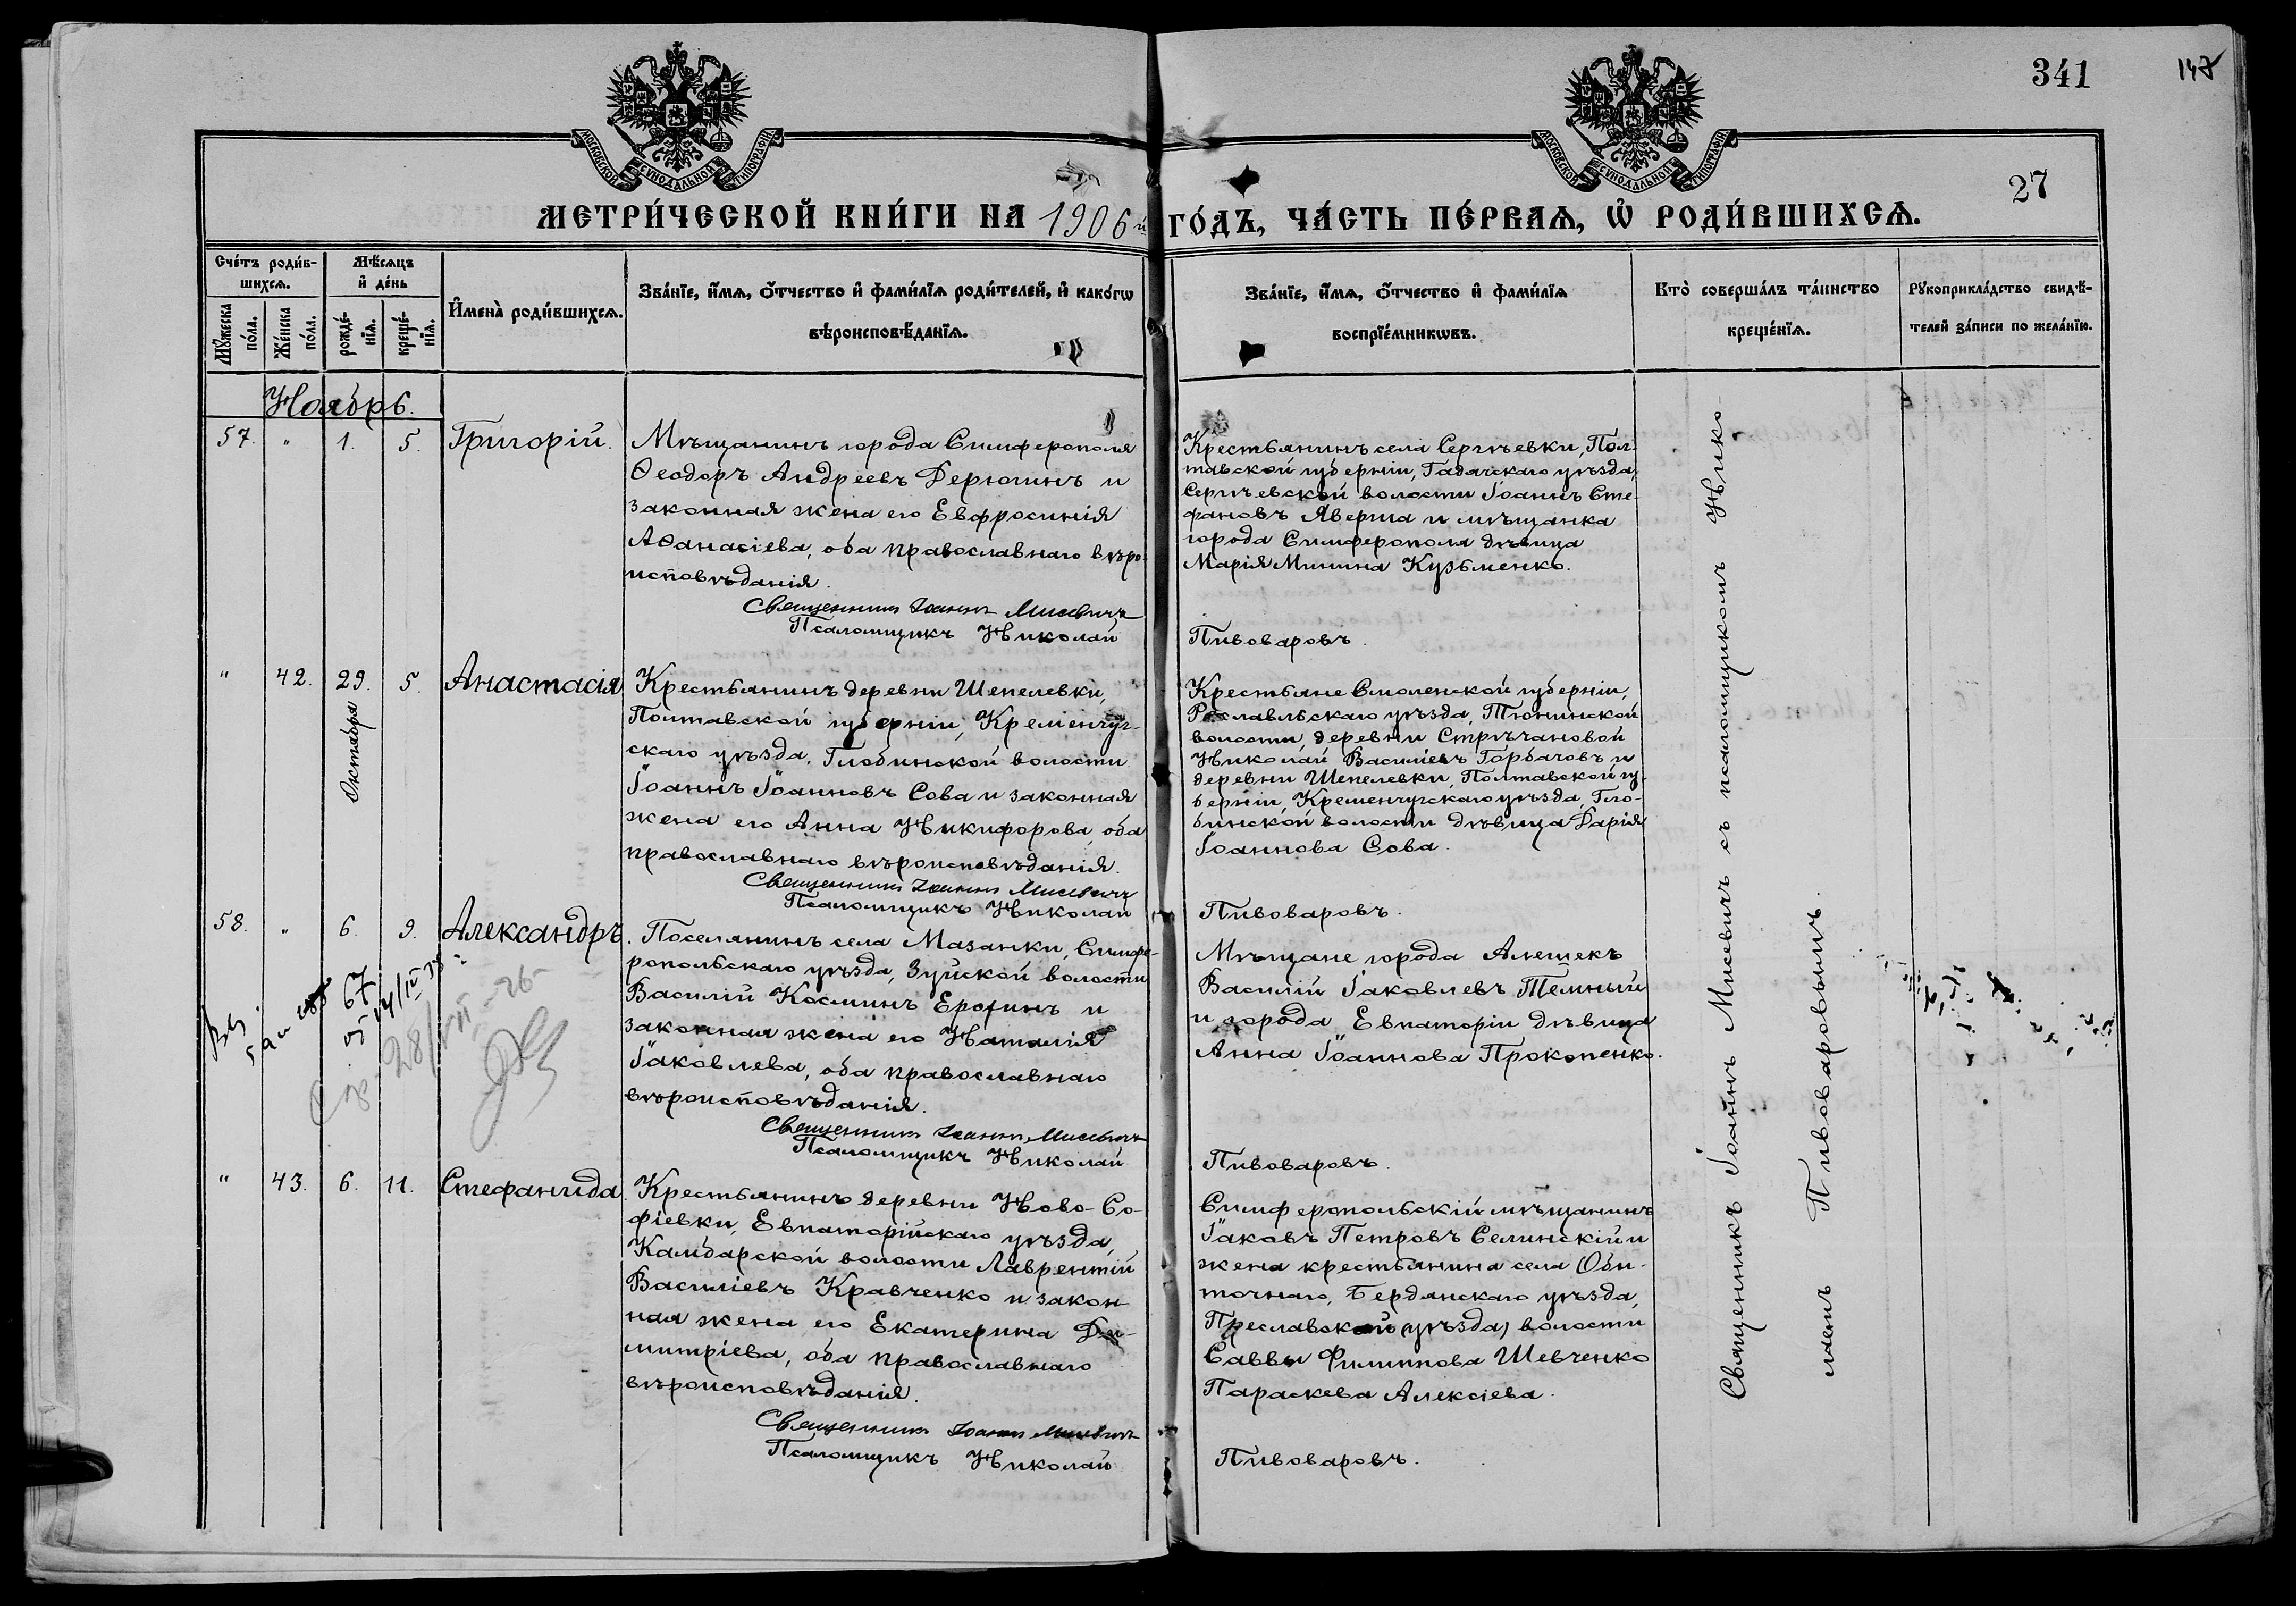 341
147
27
МОСКОВСКОЙ СѴНОДАЛЬНОЙ ТИПОГРАФІИ
МОСКОВСКОЙ СѴНОДАЛЬНОЙ ТИПОГРАФІИ
МЕТРИ́ЧЕСКОЙ КНИ́ГИ НА 1906 й ГО́ДЪ, ЧА́СТЬ ПЕ́РВАЯ, Ѡ҆ РОДИ́ВШИХСЯ.
Сче́тъ роди́в-
шихся.
Мꙋ́жеска по́ла.
Же́нска по́ла.
Мѣ́сяцъ
и҆ де́нь
рожде́-
нїя.
креще́-
нїя.
И҆мена̀ роди́вшихся.
Зва́нїе, и҆́мя, ѻ҆́тчество и҆ фами́лїя роди́телей, и҆ како́гѡ
вѣроисповѣ́данїя.
Зва́нїе, и҆́мя, ѻ҆́тчество и҆ фами́лїя
воспрїе́мникѡвъ.
Кто̀ соверша́лъ та́инство
креще́нїя.
Рꙋкоприкла́дство свидѣ́-
телей за́писи по жела́нїю.
Ноябрь.
57. " 1. 5. Григорій.
Мѣщанинъ города Симферополя
Ѳеодоръ Андреевъ Дерюгинъ и
законная жена его Евфросинія
Аѳанасіева, оба православнаго вѣро-
исповѣданія.
Священникъ Іоаннъ Мисевичъ
Псаломщикъ Николай
Крестьянинъ села Сергѣевки, Пол-
тавской губерніи, Гадячскаго уѣзда,
Сергѣевской волости Іоаннъ Сте-
фановъ Яверша и мѣщанка
города Симферополя дѣвица
Марія Минина Кузьменко.
Пивоваровъ.
" 42. 29. 5. Анастасія
Октября
Крестьянинъ деревни Шепелевки,
Полтавской губерніи, Кременчуг-
скаго уѣзда, Глобинской волости
Іоаннъ Іоанновъ Сова и законная
жена его Анна Никифорова, оба
православнаго вѣроисповѣданія.
Священникъ Іоаннъ Мисевичъ
Псаломщикъ Николай
Крестьяне Смоленской губерніи,
Рославльскаго уѣзда, Тюнинской
волости, деревни Стрѣчановой
Николай Василіевъ Горбачовъ и
деревни Шепелевки, Полтавской гу-
берніи, Кременчугскаго уѣзда, Гло-
бинской волости дѣвица Дарія
Іоаннова Сова.
Пивоваровъ.
58. " 6. 9. Александръ.
67
Поселянинъ села Мазанки, Симфе-
ропольскаго уѣзда, Зуйской волости
Василій Косминъ Ерогинъ и
законная жена его Наталія
Іаковлева, оба православнаго
вѣроисповѣданія.
Священникъ Іоаннъ Мисевичъ
Псаломщикъ Николай
Мѣщане города Алешекъ
Василій Іаковлевъ Темный
и города Евпаторіи дѣвица
Анна Іоаннова Прокопенко.
Пивоваровъ.
" 43. 6. 11. Стефанида.
Крестьянинъ деревни Ново-Со-
фіевки, Евпаторійскаго уѣзда,
Камбарской волости Лаврентій
Василіевъ Кравченко и закон-
ная жена его Екатерина Ди-
митріева, оба православнаго
вѣроисповѣданія.
Священникъ Іоаннъ Мисевичъ
Псаломщикъ Николай
Симферопольскій мѣщанинъ
Іаковъ Петровъ Селинскій и
жена крестьянина села Оби-
точнаго, Бердянскаго уѣзда,
Преславской (уѣзда) волости
Саввы Филиппова Шевченко
Параскева Алексіева.
Пивоваровъ.
Священникъ Іоаннъ Мисевичъ съ псаломщикомъ Нико-
лаемъ Пивоваровымъ.